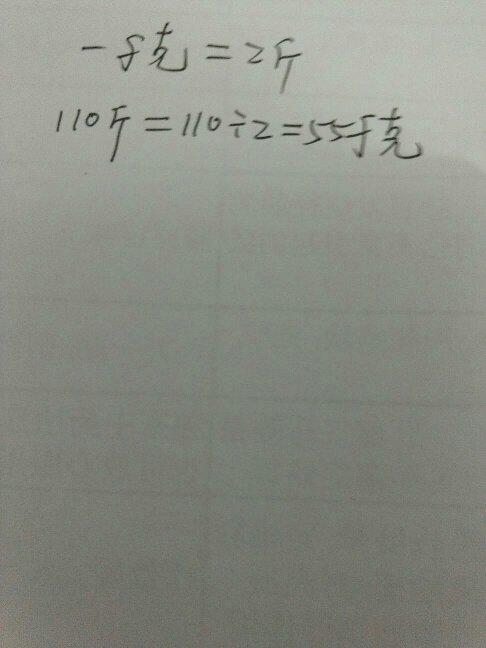 一千克=2斤
110斤=110÷2=55千克